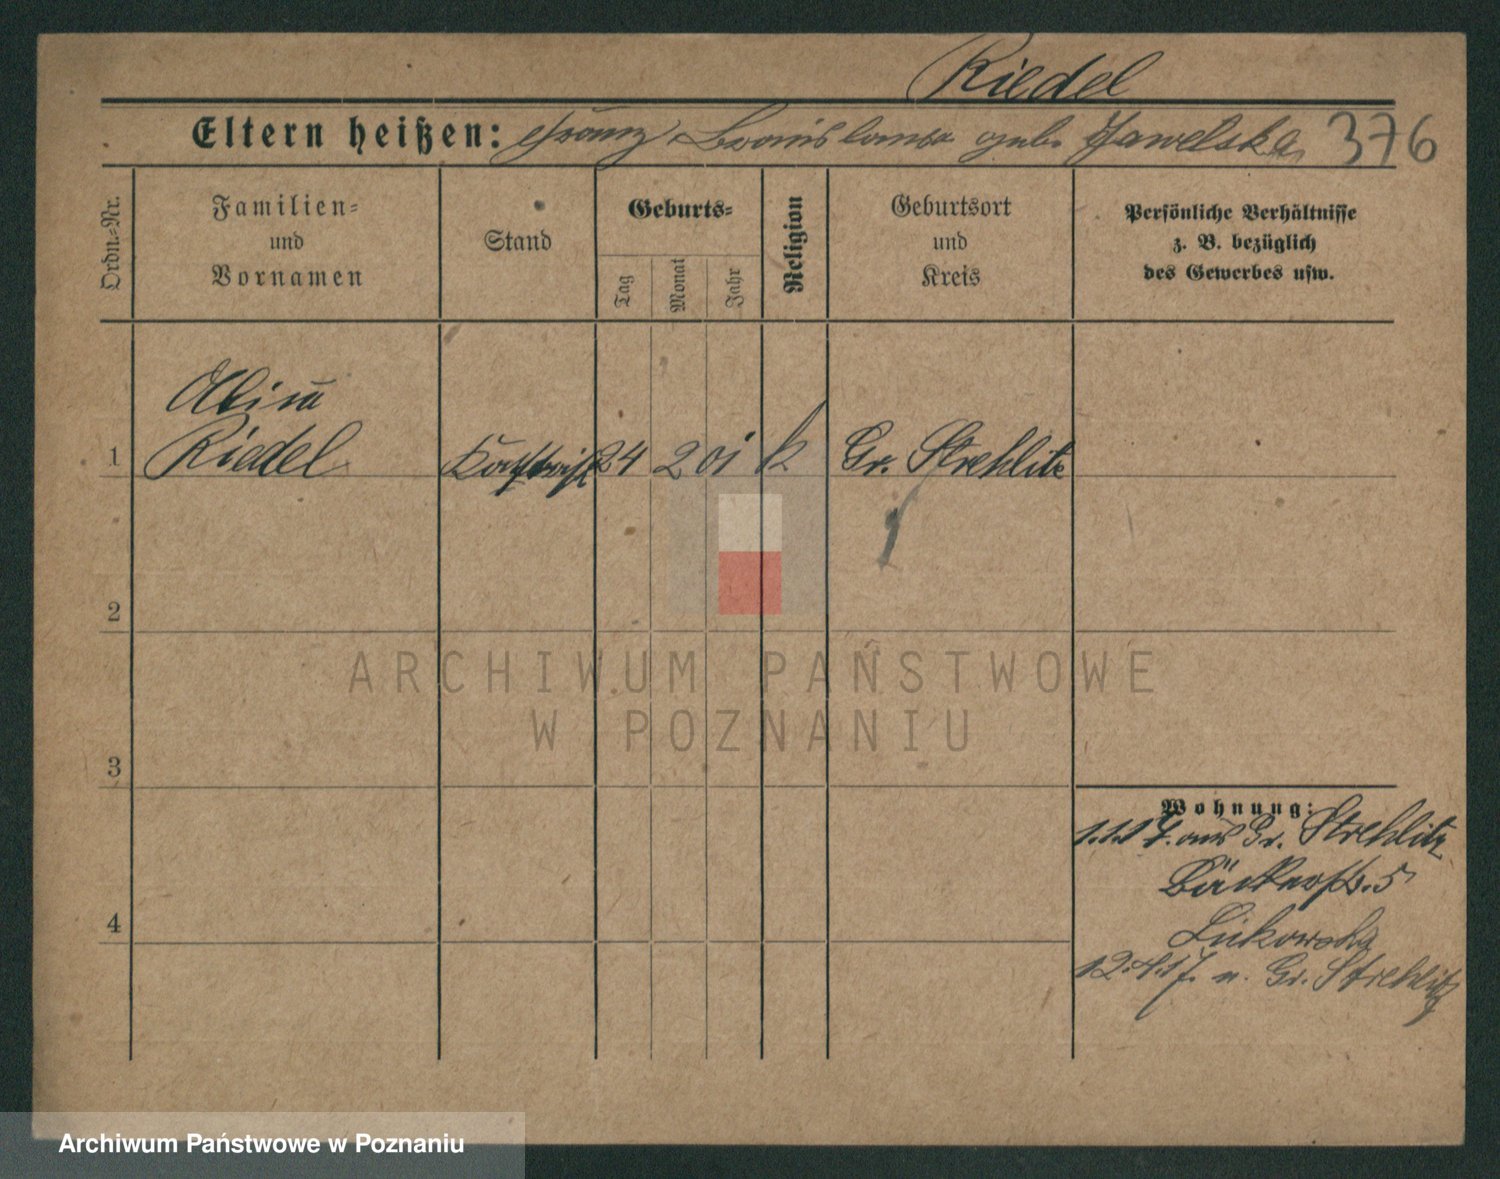 Riedel
Eltern heißen: Franz Bronislawa geb. Gawelska 376
Ordn.-Nr.
Familien-
und
Vornamen
Stand
Geburts-
Tag
Monat
Jahr
Religion
Geburtsort
und
Kreis
Persönliche Verhältnisse
z. B. bezüglich
des Gewerbes usw.
Riedel
1 24 2 01 k Gr. Strehlitz
2
ARCHIWUM PAŃSTWOWE
W POZNANIU
3
Wohnung:
1.1.17. aus Gr. Strehlitz
Bäckerstr. 5
Lukowska
4
12.4.17. n. Gr. Strehlitz
Archiwum Państwowe w Poznaniu